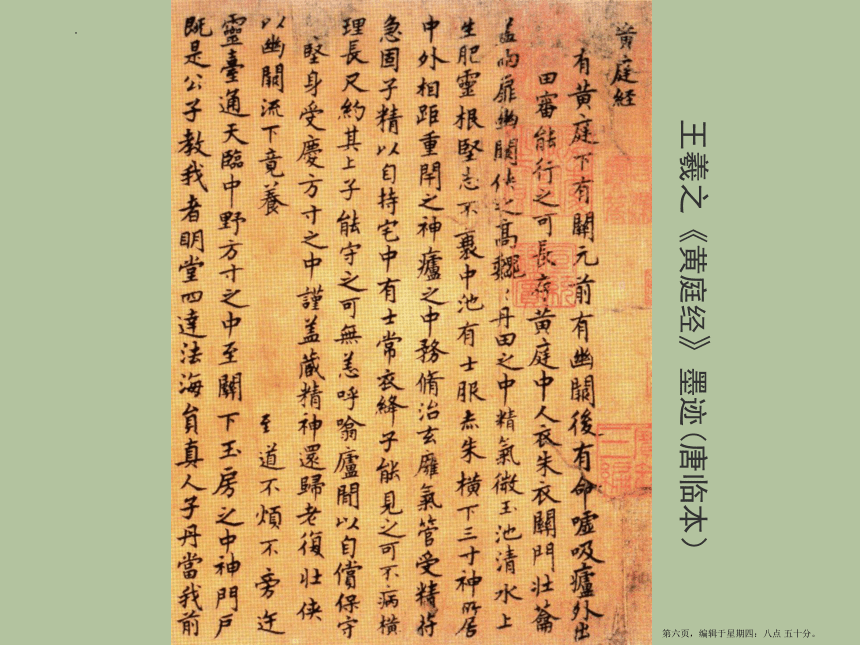 王羲之《黄庭经》墨迹(唐临本)
黄庭経
有黄庭下有關元前有幽關後有命噓吸廬外出
田審能行之可長存黄庭中人衣朱衣關門壯籥
盖兩扉幽關侠之高巍:丹田之中精氣微玉池清水上
生肥靈根堅志不衰中池有士服赤朱横下三寸神所居
中外相距重閇之神廬之中務脩治玄癰氣管受精符
急固子精以自持宅中有士常衣絳子能見之可不病横
理長尺約其上子能守之可無恙呼噏廬間以自償保守
堅身受慶方寸之中謹盖藏精神還歸老復壯侠
以幽關流下竟養 至道不煩不旁迕
靈臺通天臨中野方寸之中至關下玉房之中神門戸
既是公子教我者明堂四達法海貟真人子丹當我前
第六页，编辑于星期四：八点 五十分。